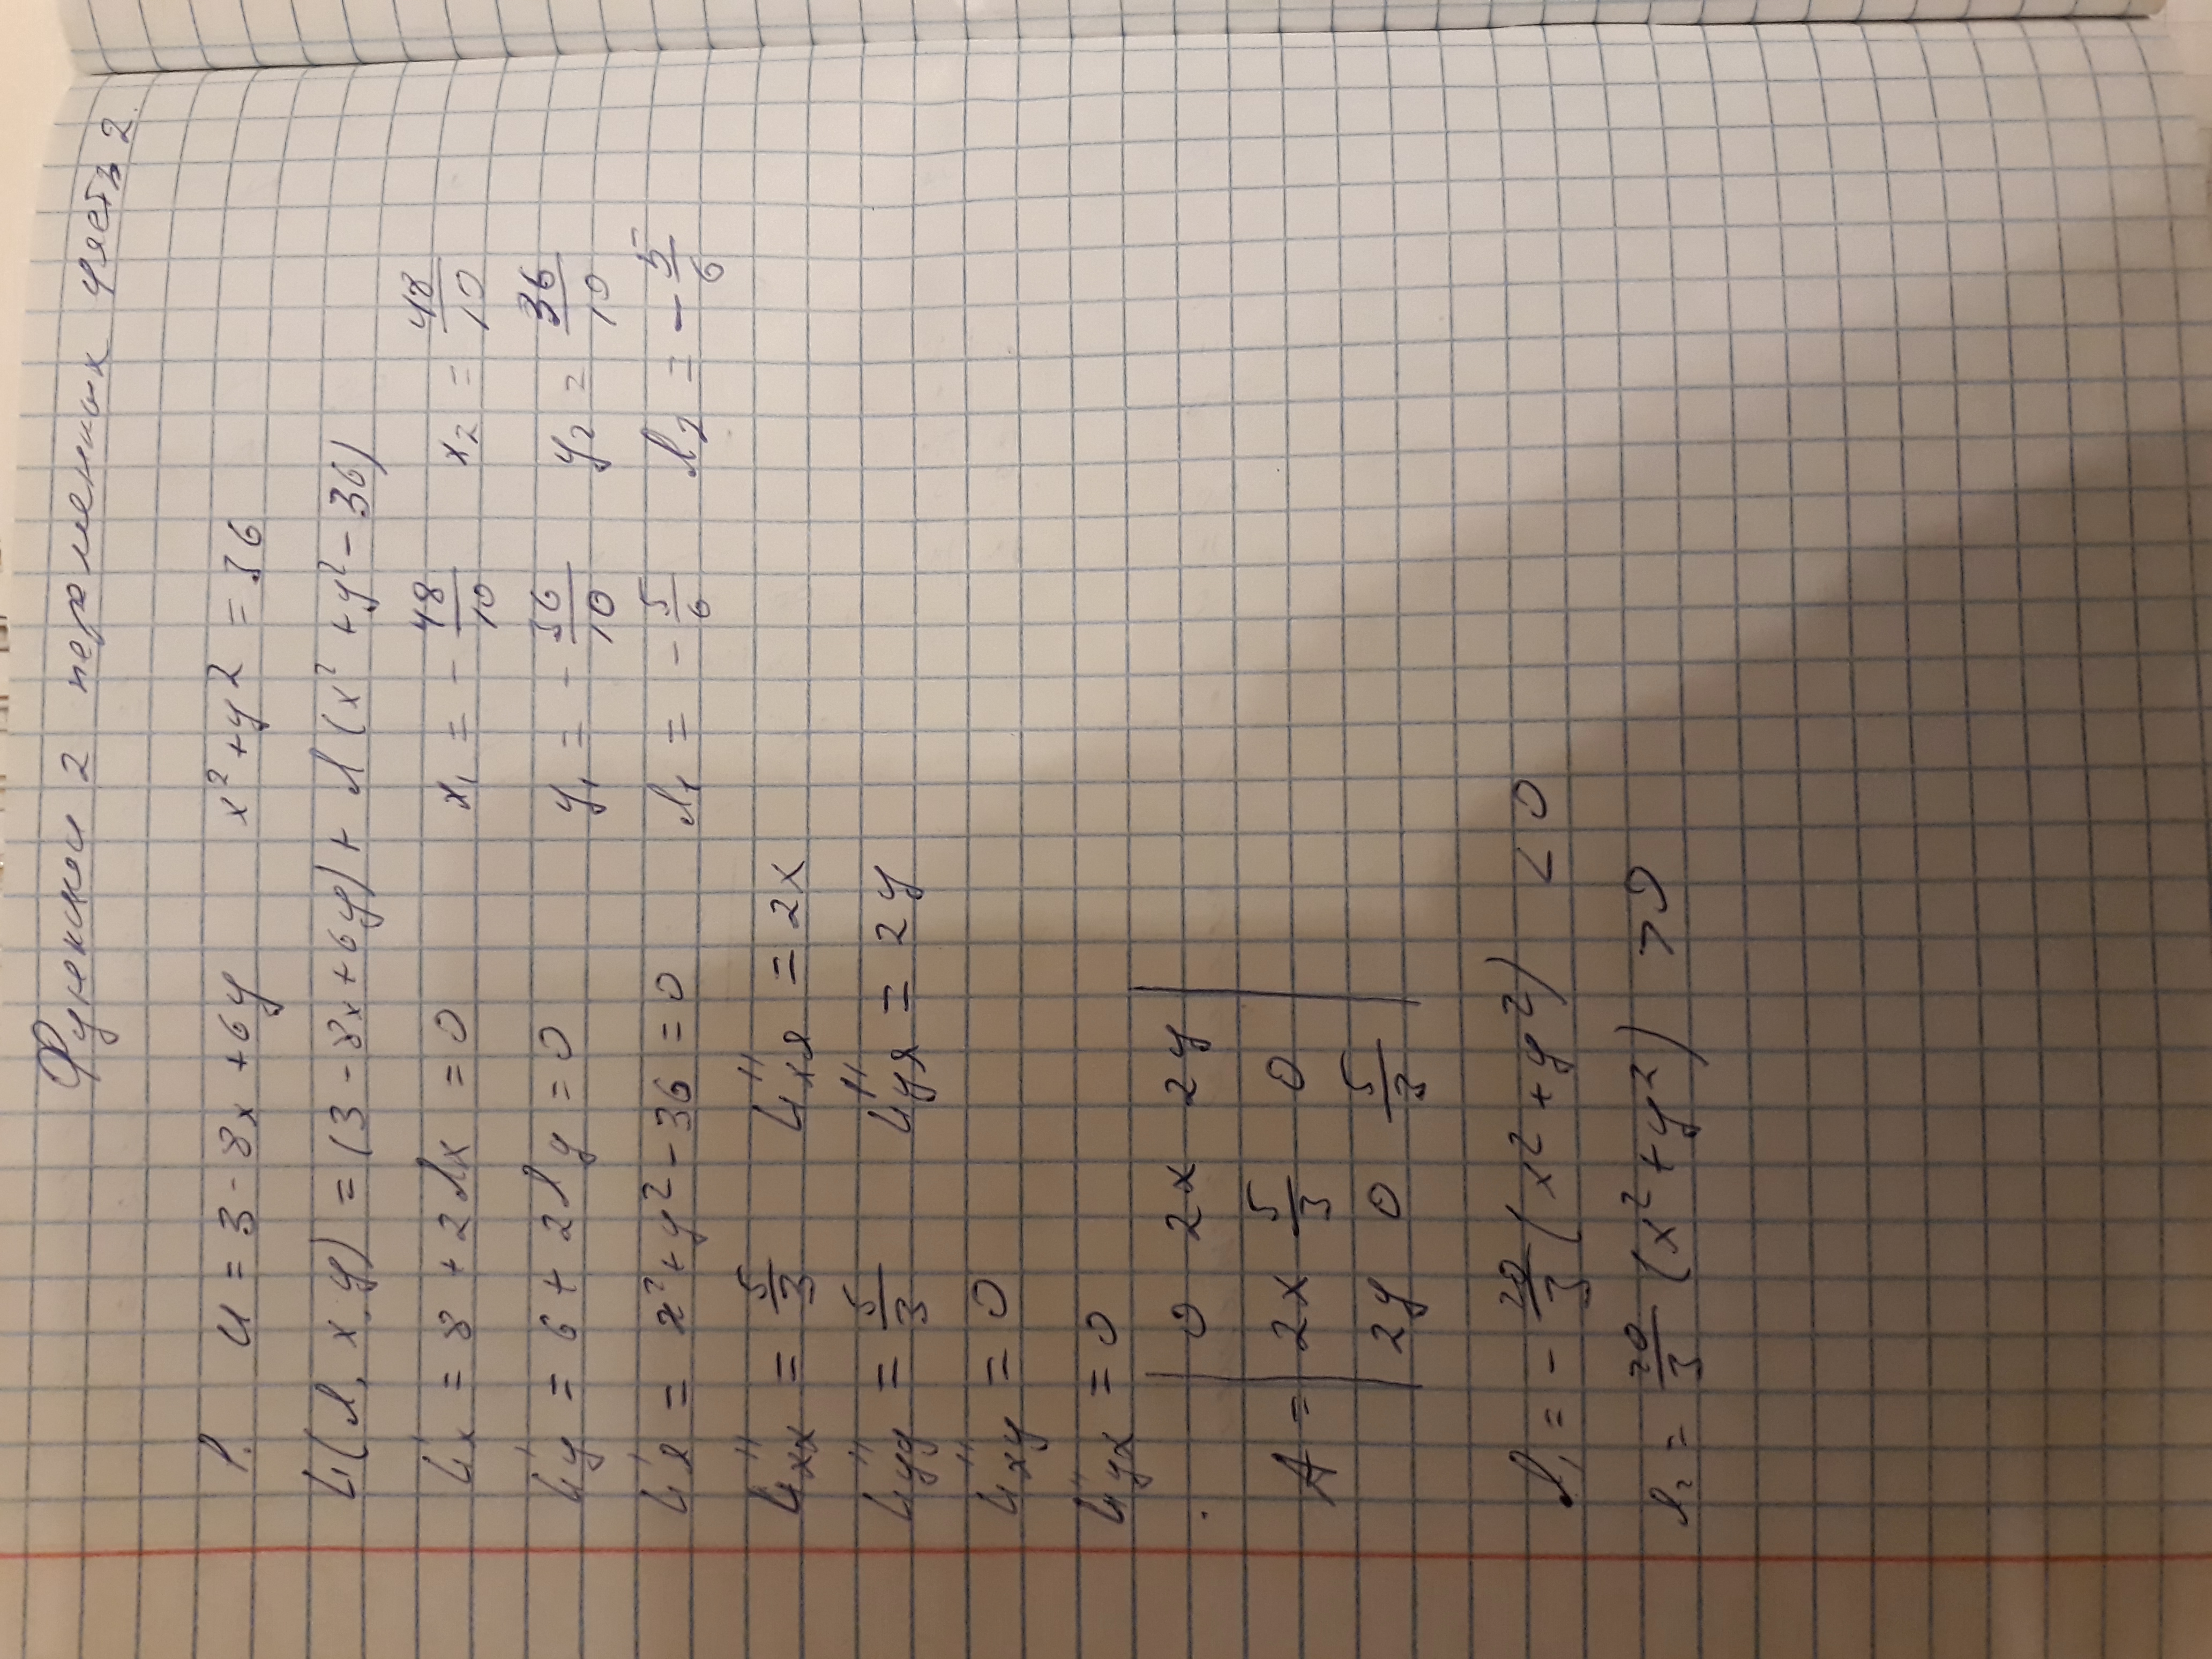 Функции 2 переменных часть 2.
1. U = 3 - 8x + 6y x² + y² = 36
L(λ, x, y) = (3 - 8x + 6y) + λ(x² + y² - 36)
L'x = 8 + 2λx = 0 x₁ = - 48/10 x₂ = 48/10
L'y = 6 + 2λy = 0 y₁ = - 36/10 y₂ = 36/10
L'λ = x² + y² - 36 = 0 λ₁ = - 5/6 λ₂ = - 5/6
L''xx = 5/3 L''xλ = 2x
L''yy = 5/3 L''yλ = 2y
L''xy = 0
L''yx = 0
A = | 0 2x 2y |
| 2x 5/3 0 |
| 2y 0 5/3 |
λ₁ = - 20/3 (x² + y²) < 0
λ₂ = 20/3 (x² + y²) > 0